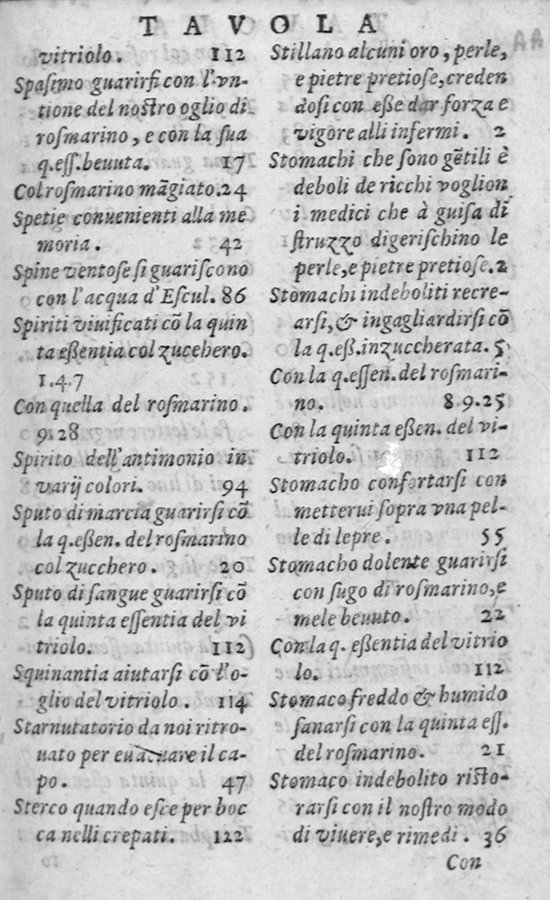 TAVOLA
vitriolo. 112
Spasimo guarirsi con l'vn-
tione del nostro oglio di
rosmarino, e con la sua
q.ess.beuuta. 17
Col rosmarino mãgiato. 24
Spetie conuenienti alla me
moria. 42
Spine ventose si guariscono
con l'acqua d'Escul. 86
Spiriti viuificati cõ la quin
ta eßentia col zucehero.
1.4.7
Con quella del rosmarino.
9.28
Spirito dell'antimonio in
varij colori. 94
Sputo di marcia guarirsi cõ
la q.eßen. del rosmarino
col zucchero. 20
Sputo di sangue guarirsi cõ
la quinta essentia del vi
triolo. 112
Squinantia aiutarsi cõ l'o-
glio del vitriolo. 114
Starnutatorio da noi ritro-
uato per euacuare il ca-
po. 47
Sterco quando esce per boc
ca nelli crepati. 122
Stillano alcuni oro, perle,
e pietre pretiose, creden
dosi con eße dar forza e
vigore alli infermi. 2
Stomachi che sono gẽtili è
deboli de ricchi voglion
i medici che à guisa di
struzzo digerischino le
perle, e pietre pretiose. 2
Stomachi indeboliti recre-
arsi, & ingagliardirsi cõ
la q.eß.inzuccherata. 5
Con la q.essen. del rosmari-
no. 8.9.25
Con la quinta eßen. del vi-
triolo. 112
Stomacho confortarsi con
metterui sopra vna pel-
le di lepre. 55
Stomacho dolente guarirsi
con sugo di rosmarino, e
mele beuuto. 22
Con la q. eßentia del vitrio
lo. 112
Stomaco freddo & humido
sanarsi con la quinta ess.
del rosmarino. 21
Stomaco indebolito risto-
rarsi con il nostro modo
di viuere, e rimedi. 36
Con